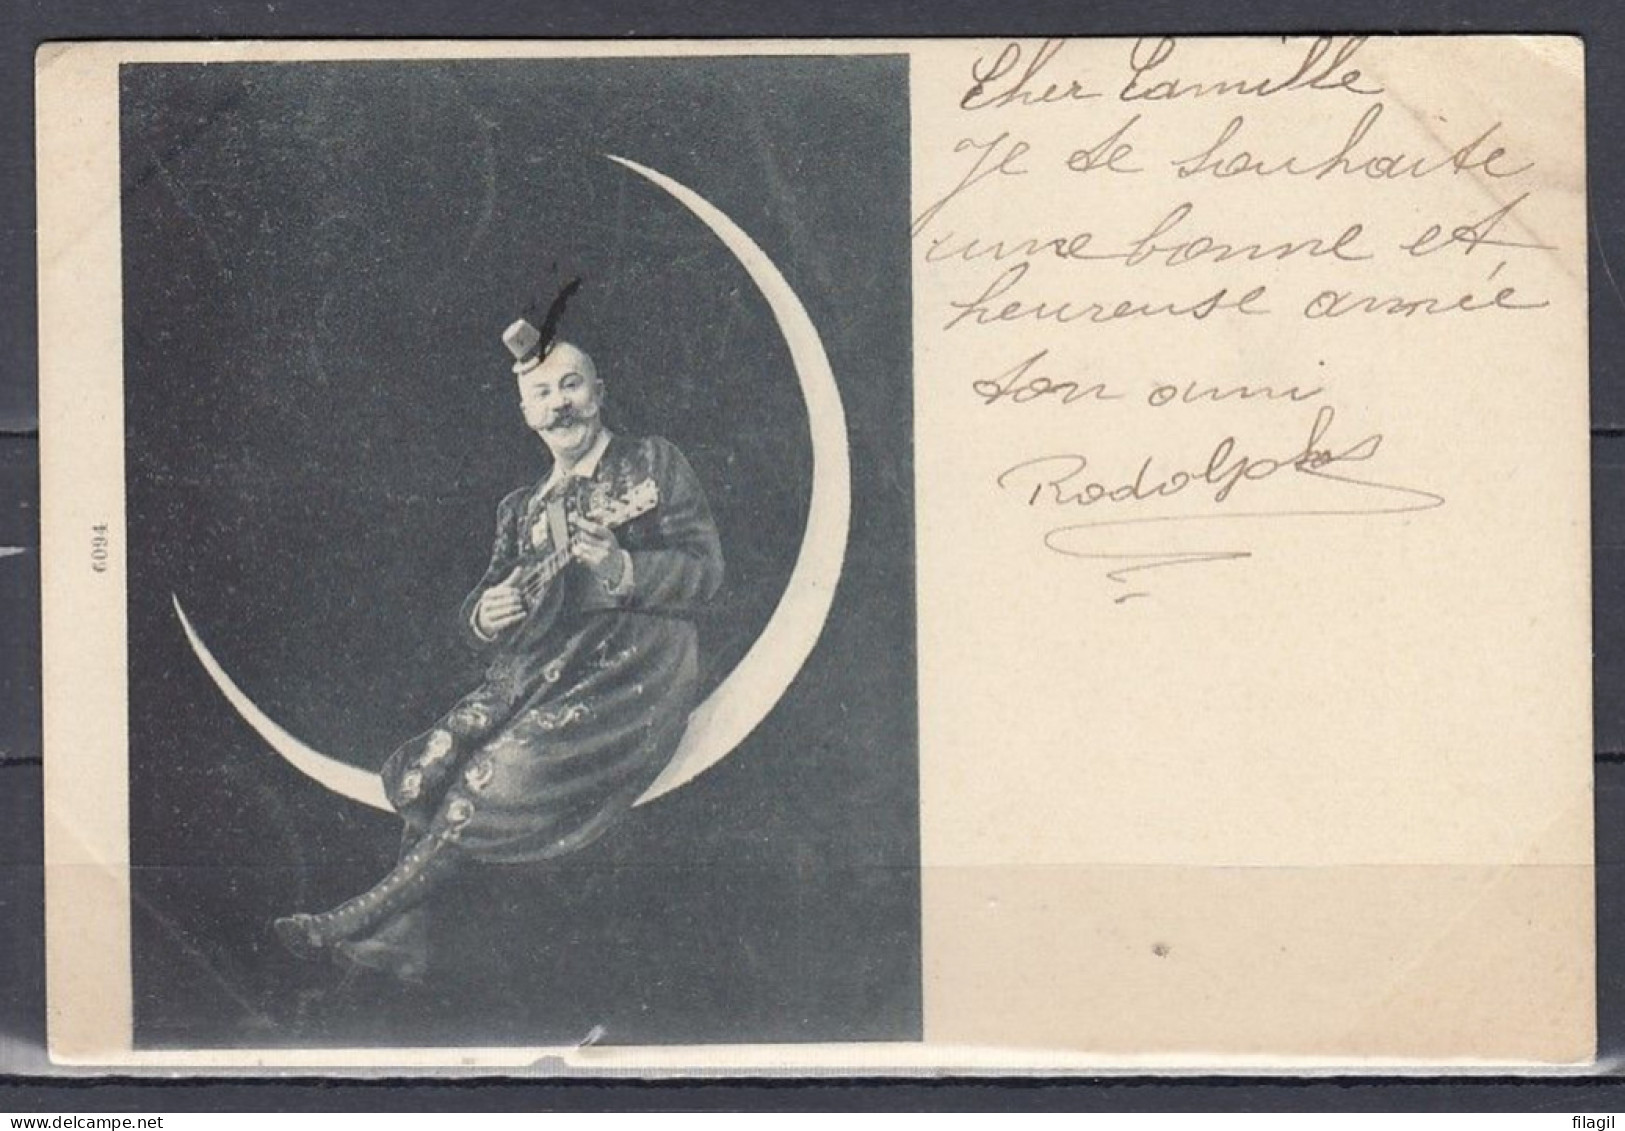 Cher Camille
Je te souhaite
une bonne et
heureuse année
ton ami
Rodolphe
6094
filagil